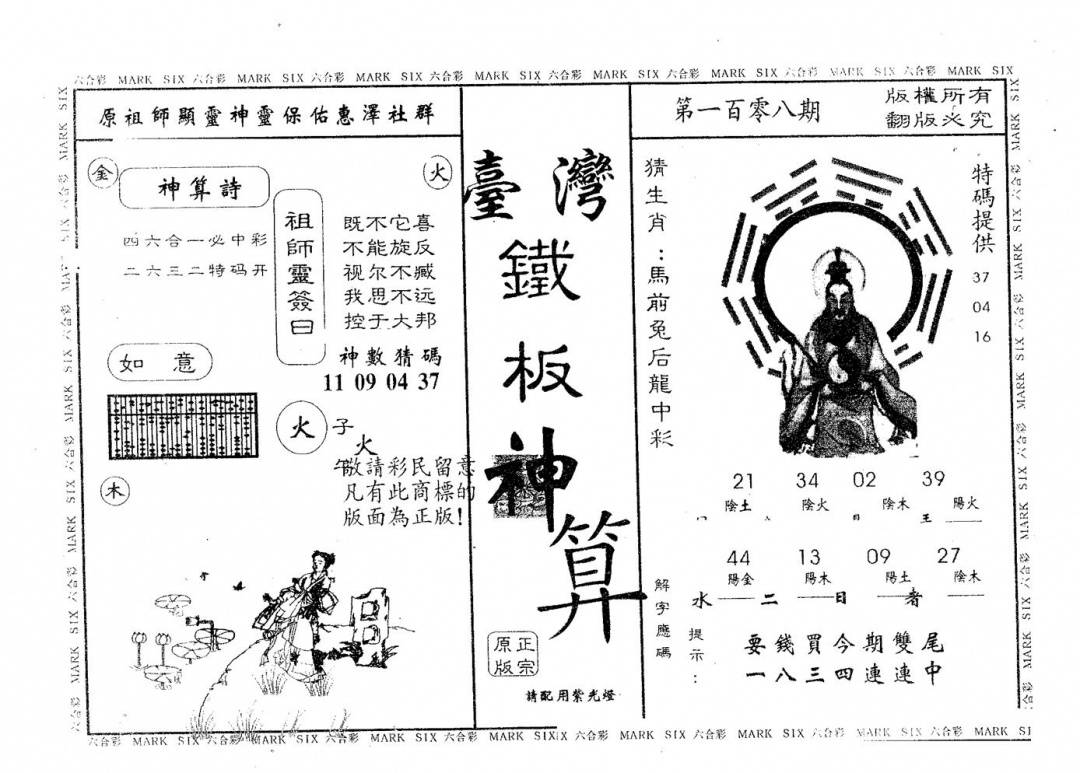 六合彩 MARK SIX 六合彩 MARK SIX 六合彩 MARK SIX 六合彩 MARK SIX 六合彩 MARK SIX 六合彩 MARK SIX 六合彩 MARK SIX 六合彩 MARK SIX
原祖師顯靈神靈保佑惠澤社群
金
火
神算詩
四六合一必中彩
二六三二特码开
祖師靈簽曰
既不它喜
不能旋反
视尔不臧
我思不远
控于大邦
神數猜碼
11 09 04 37
如意
火
子
火
午
敬請彩民留意
凡有此商標的
版面為正版!
木
臺灣
鐵
板
神
算
正宗
原版
請配用紫光燈
第一百零八期
版權所有
翻版必究
猜生肖:馬前兔后龍中彩
特碼提供
37
04
16
21 34 02 39
陰土 陰火 陰木 陽火
44 13 09 27
陽金 陽木 陽土 陰木
解字應碼
水 二 日 者
提示:
要錢買今期雙尾
一八三四連連中
六合彩 MARK SIX 六合彩 MARK SIX 六合彩 MARK SIX 六合彩 MARK SIX 六合彩 MARK SIX 六合彩 MARK SIX 六合彩 MARK SIX 六合彩 MARK SI